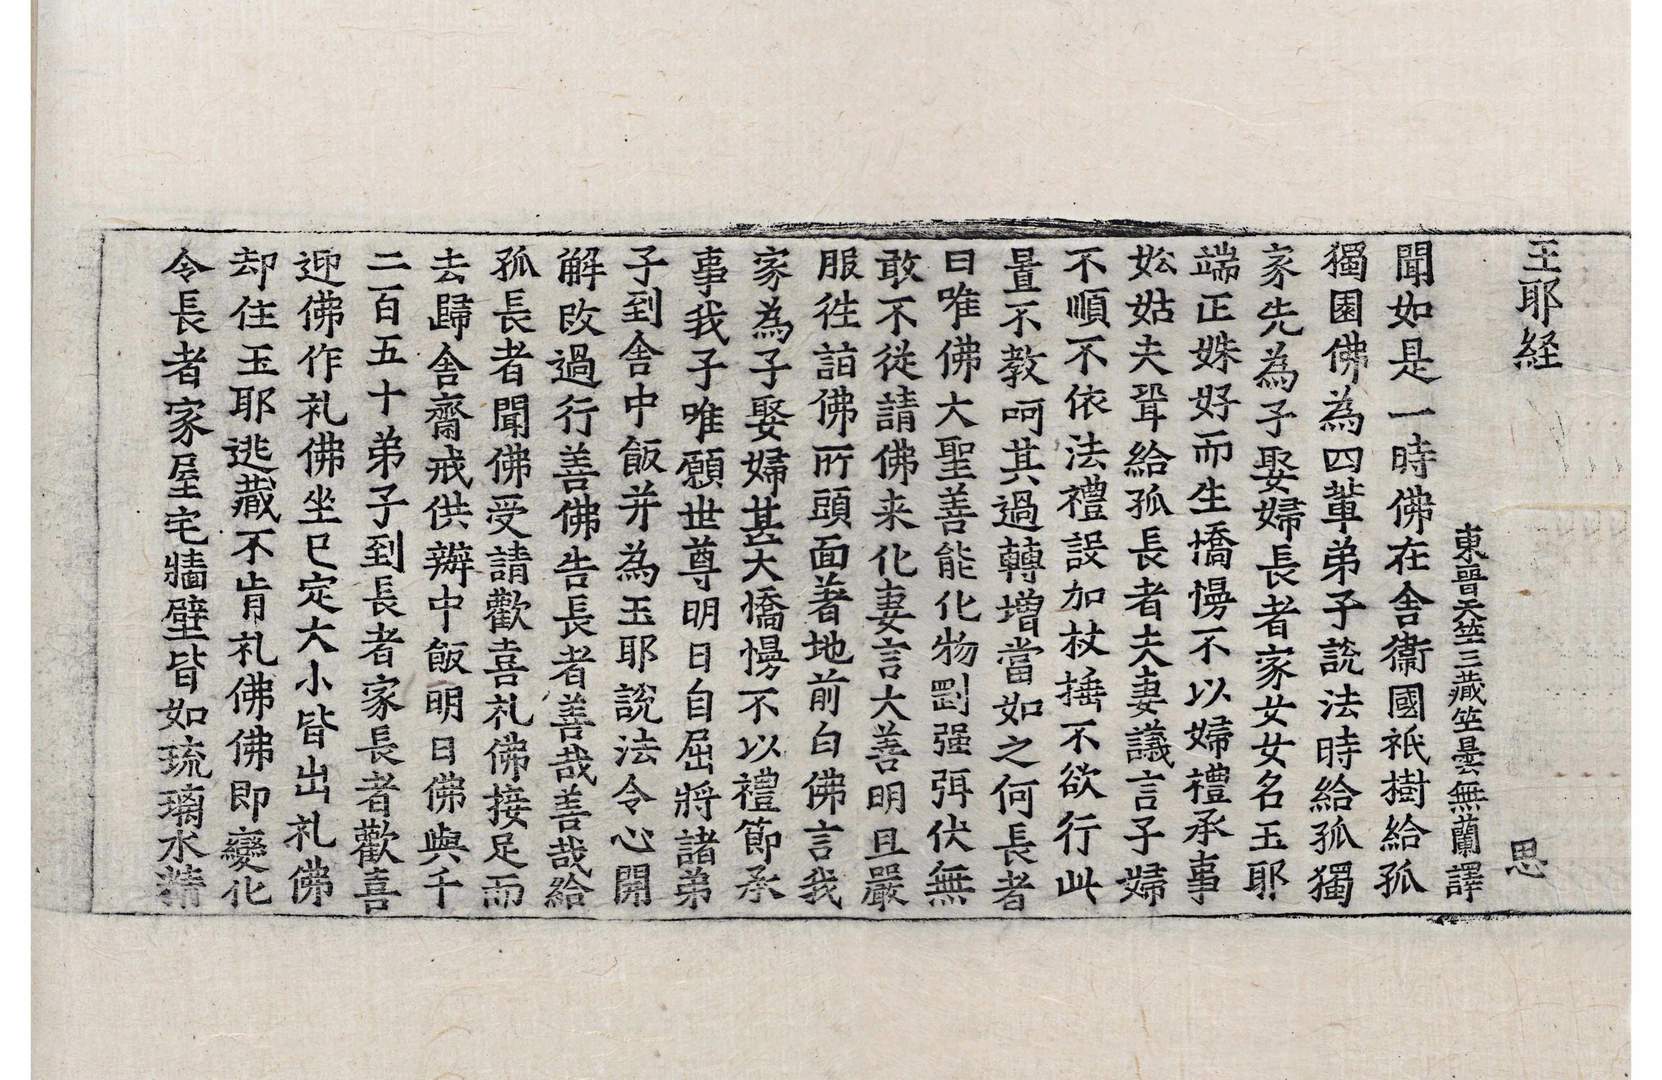 玉耶経 思
東晋天竺三藏竺曇無蘭譯
聞如是一時佛在舍衞國祇樹給孤
獨園佛為四輩弟子說法時給孤獨
家先為子娶婦長者家女女名玉耶
端正姝好而生憍慢不以婦禮承事
妐姑夫聟給孤長者夫妻議言子婦
不順不依法禮設加杖捶不欲行此
置不教呵其過轉增當如之何長者
曰唯佛大聖善能化物剛强弭伏無
敢不從請佛来化妻言大善明旦嚴
服徃詣佛所頭面著地前白佛言我
家為子娶婦甚大憍慢不以禮節承
事我子唯願世尊明日自屈將諸弟
子到舍中飯并為玉耶說法令心開
解改過行善佛告長者善哉善哉給
孤長者聞佛受請歡喜礼佛接足而
去歸舍齋戒供辦中飯明日佛與千
二百五十弟子到長者家長者歡喜
迎佛作礼佛坐已定大小皆出礼佛
却住玉耶逃藏不肯礼佛佛即變化
令長者家屋宅牆壁皆如琉璃水精